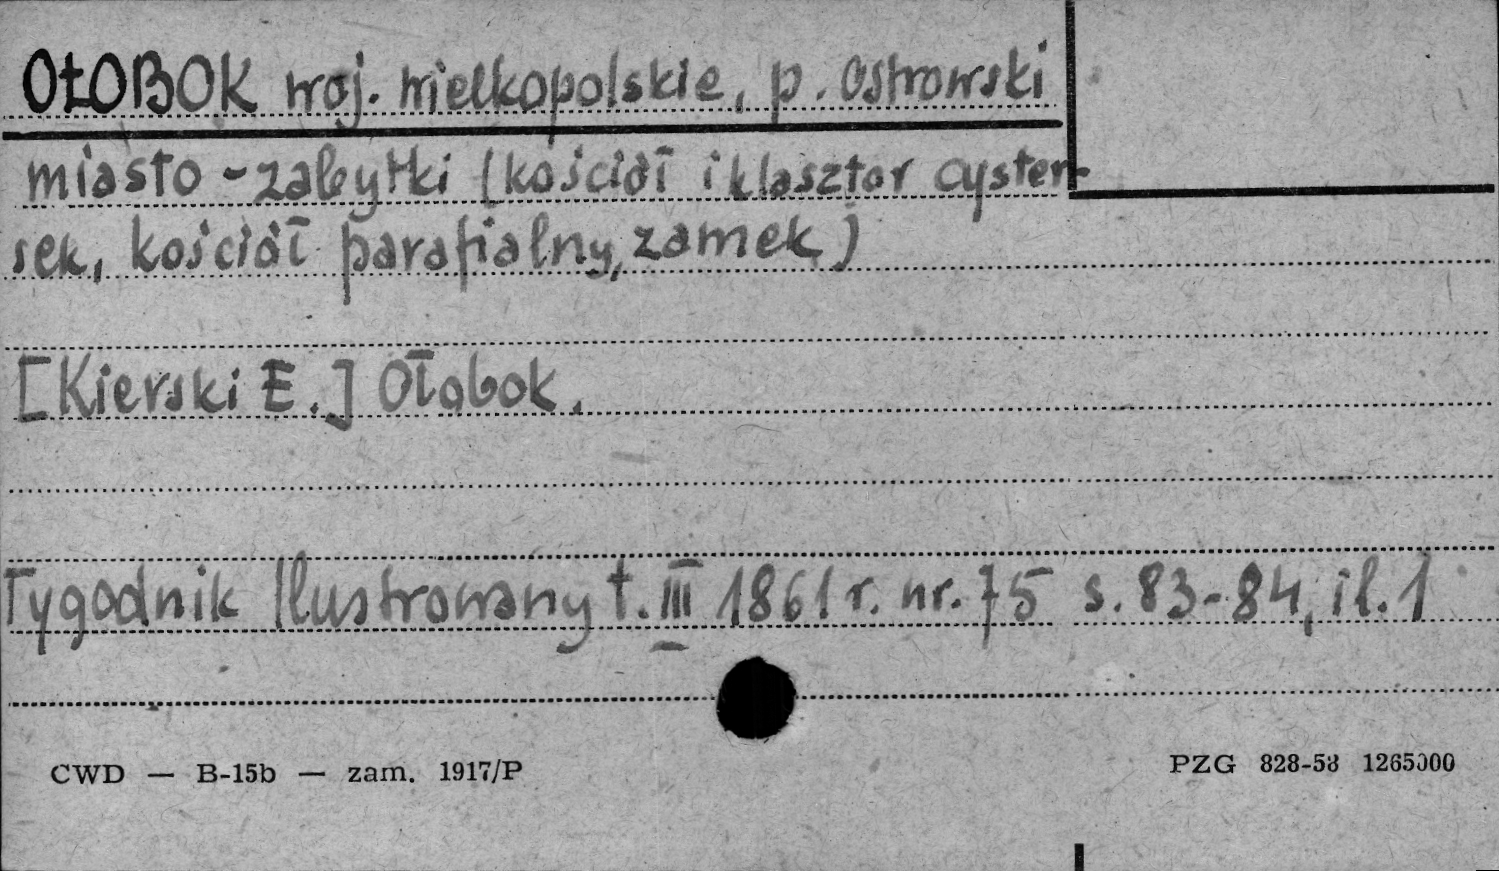 OŁOBOK woj. wielkopolskie, p. Ostrowski
miasto - zabytki (kościół i klasztor cyster-
sek, kościół parafialny, zamek)
[Kierski E.] Ołobok.
Tygodnik Ilustrowany t. III 1861 r. nr. 75 s. 83-84, il. 1
CWD — B-15b — zam. 1917/P
PZG 828-58 1265000